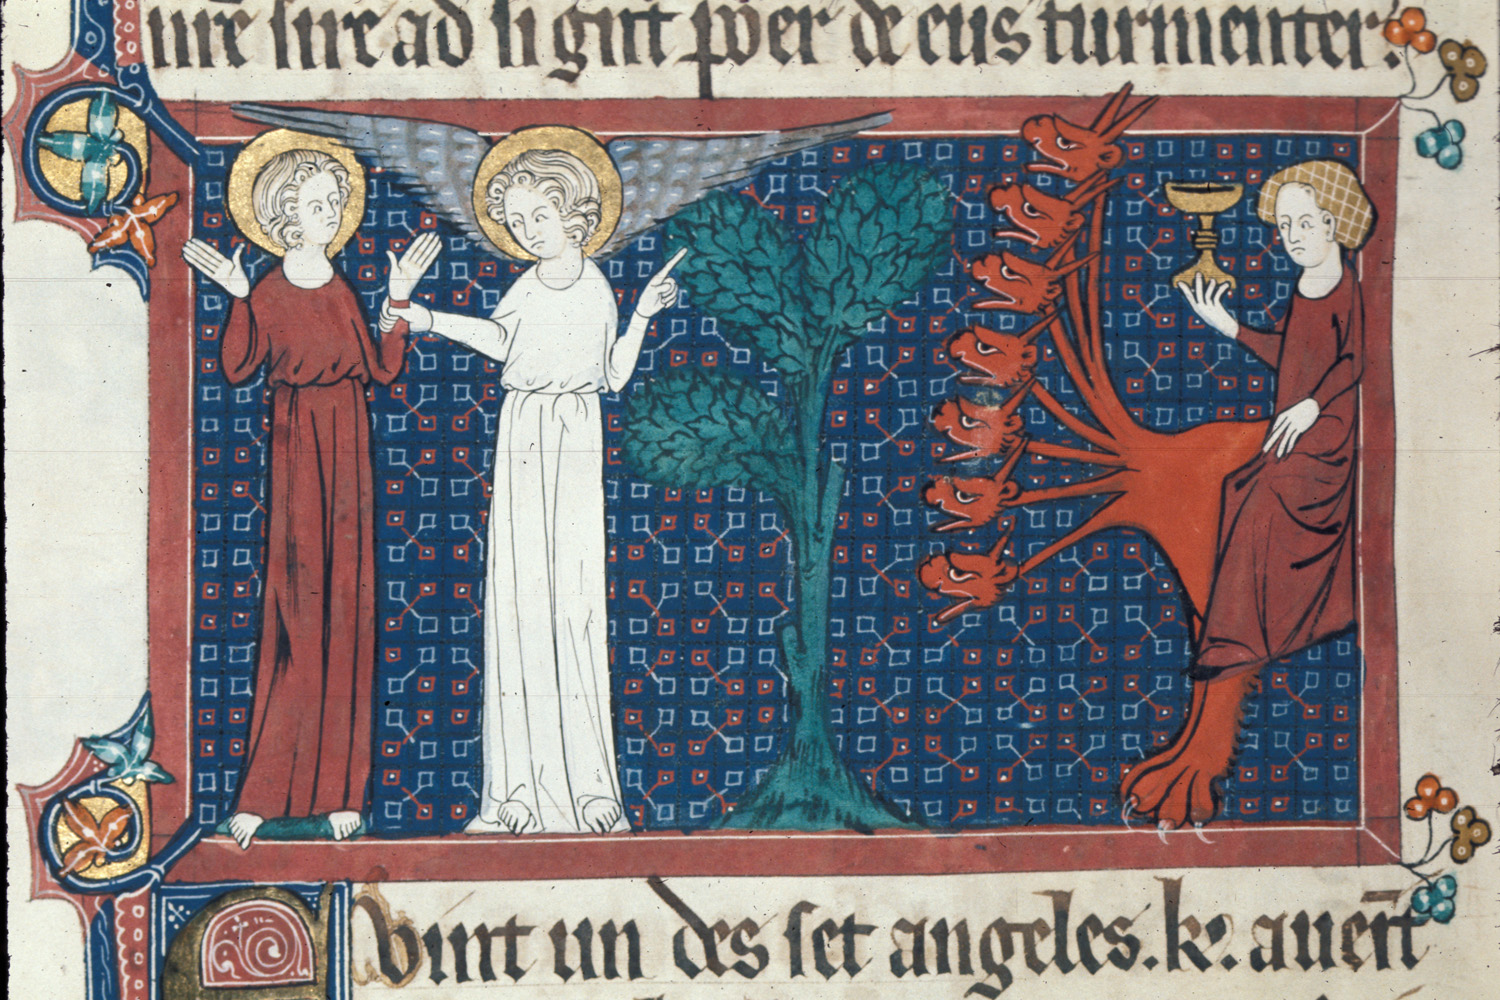 sire ad si grit poer de eus turmenter.
Vint un des set angeles. ke. aueńt